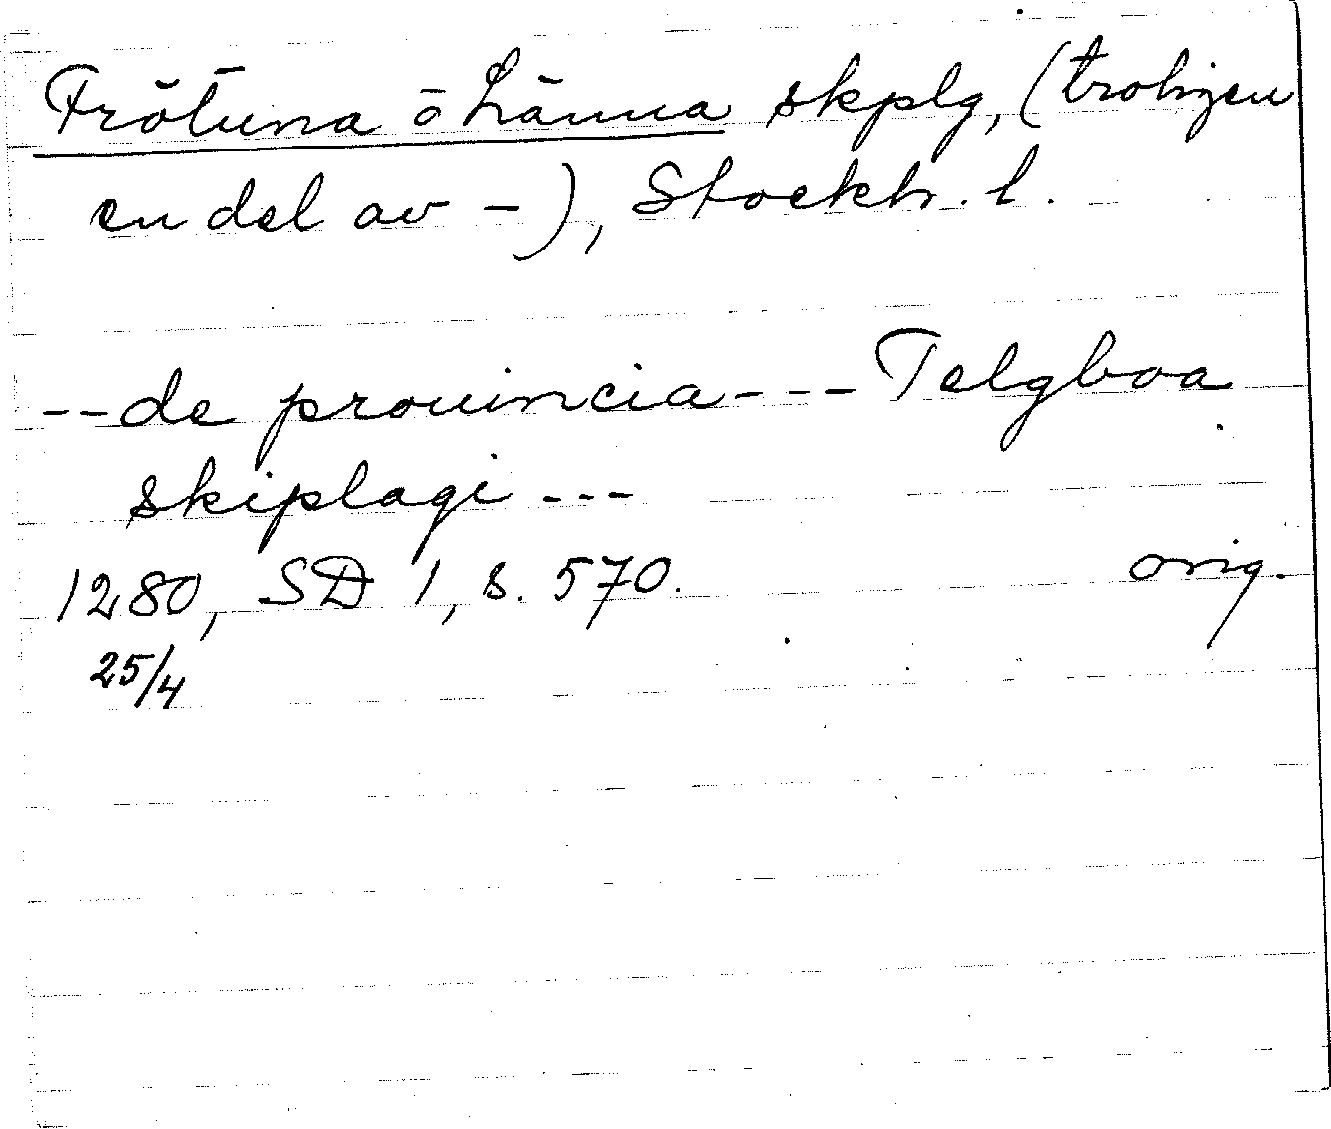 Frötuna o Länna skplg, (troligen
en del av –), Stockh. l.
-- de prouincia --- Telgboa
skiplagi ---
1280, SD 1, s. 570. orig.
25/4